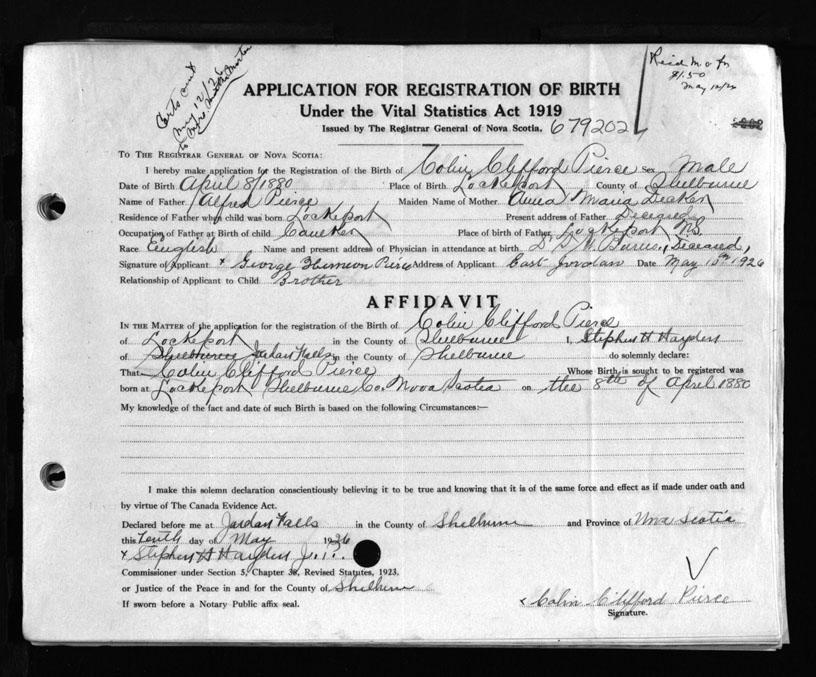 Certs sent
May 12/26
to
Recd M.O. for
$1.50
May 12/26
APPLICATION FOR REGISTRATION OF BIRTH
Under the Vital Statistics Act 1919
Issued by The Registrar General of Nova Scotia.
679202
To The Registrar General of Nova Scotia:
I hereby make application for the Registration of the Birth of Colin Clifford Pierce Sex Male
Date of Birth April 8/1880 Place of Birth Lockeport County of Shelburne
Name of Father Alfred Pierce Maiden Name of Mother Anna Maria Decker
Residence of Father when child was born Lockeport Present address of Father Deceased
Occupation of Father at Birth of child Caulker Place of birth of Father Lockeport N.S.
Race English Name and present address of Physician in attendance at birth Dr Burns, Deceased,
Signature of Applicant x George Pierce Address of Applicant East Jordan Date May 10th 1926
Relationship of Applicant to Child Brother
AFFIDAVIT
In the Matter of the application for the registration of the Birth of Colin Clifford Pierce
of Lockeport in the County of Shelburne I, Stephen H Hayden
of Shelburne Jordan Falls in the County of Shelburne do solemnly declare:
That Colin Clifford Pierce Whose Birth is sought to be registered was
born at Lockeport Shelburne Co. Nova Scotia on the 8th of April 1880
My knowledge of the fact and date of such Birth is based on the following Circumstances:—
I make this solemn declaration conscientiously believing it to be true and knowing that it is of the same force and effect as if made under oath and
by virtue of The Canada Evidence Act.
Declared before me at Jordan Falls in the County of Shelburne and Province of Nova Scotia
this Tenth day of May 1926
x Stephen H Hayden J.P.
Commissioner under Section 5, Chapter 38, Revised Statutes, 1923,
or Justice of the Peace in and for the County of Shelburne
If sworn before a Notary Public affix seal.
x Colin Clifford Pierce
Signature.